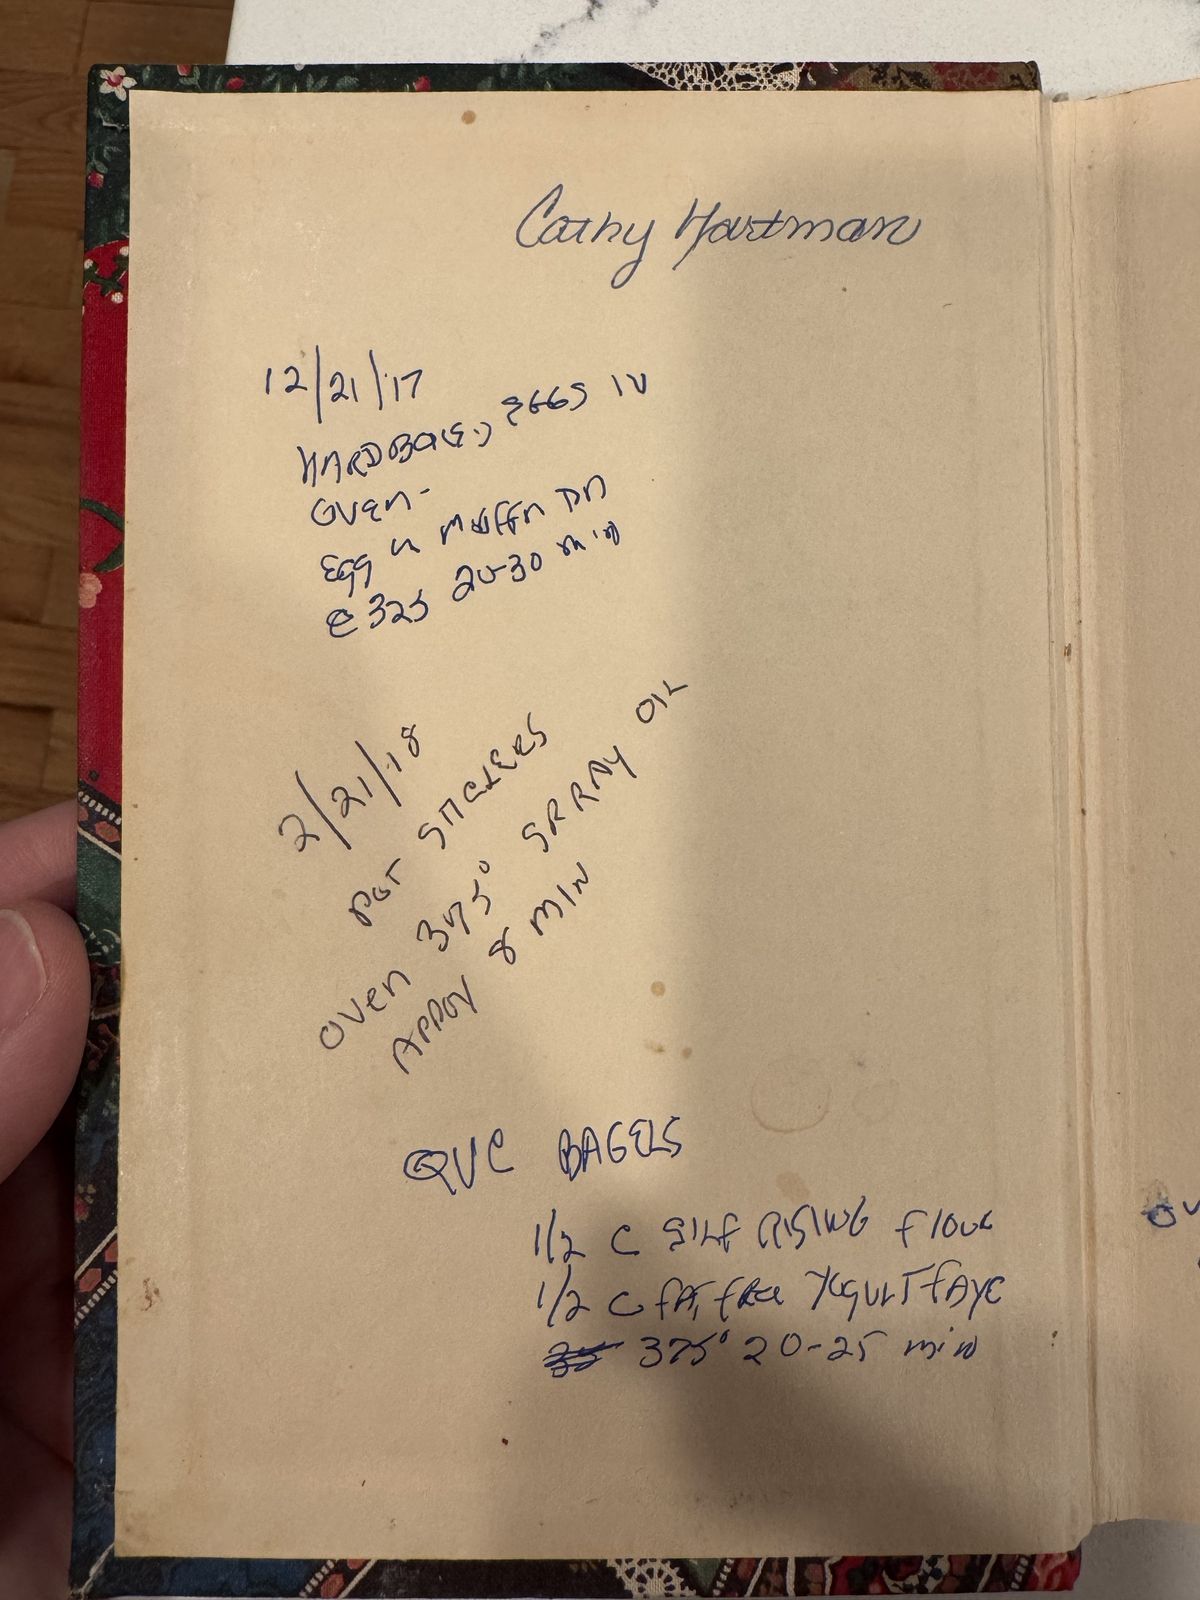 Cathy Hartman
12/21/17
HARDBOILED EGGS IN
OVEN-
Egg in muffin Tin
@ 325 20-30 min
2/21/18
POT STICKERS
OVEN 375° SPRAY OIL
APPROX 8 MIN
QVC BAGELS
1/2 C SELF RISING FLOUR
1/2 C FAT FREE YOGURT FAYE
375° 20-25 min